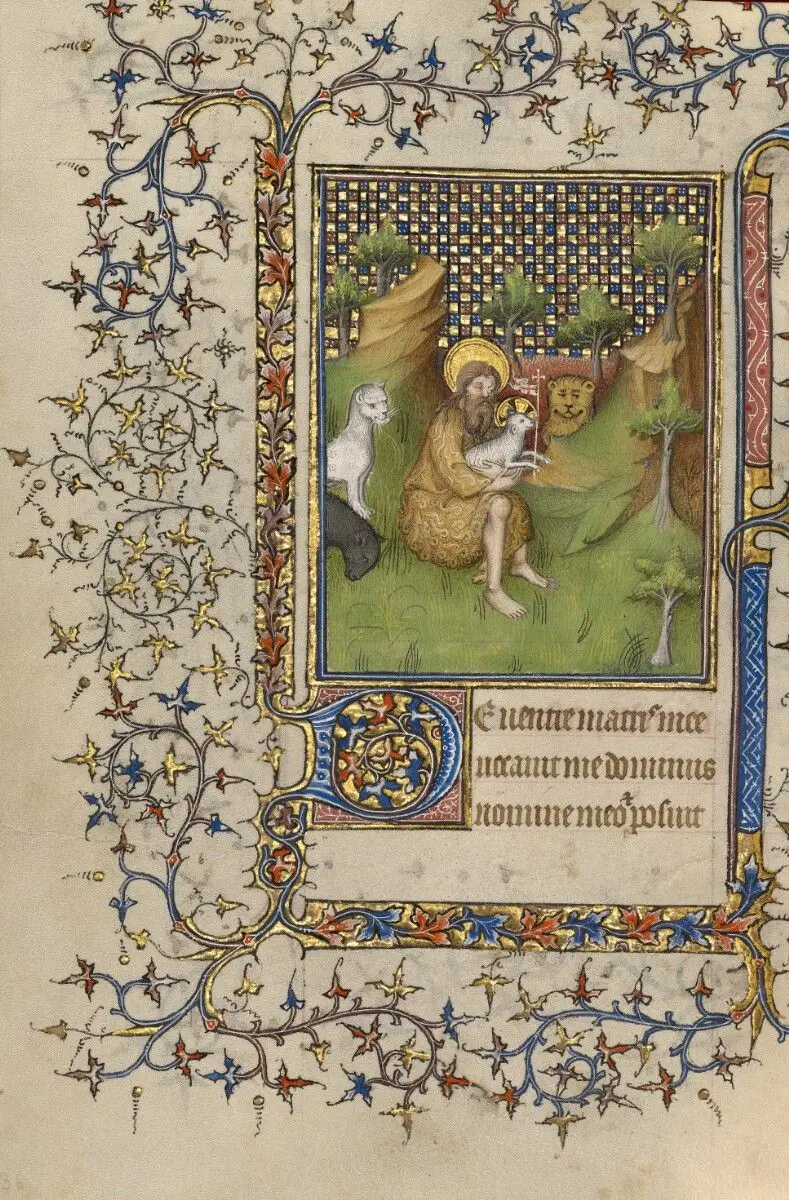 DE uentre matrˢ mee
uocauit me dominus
nomine meo ⁊ posuit